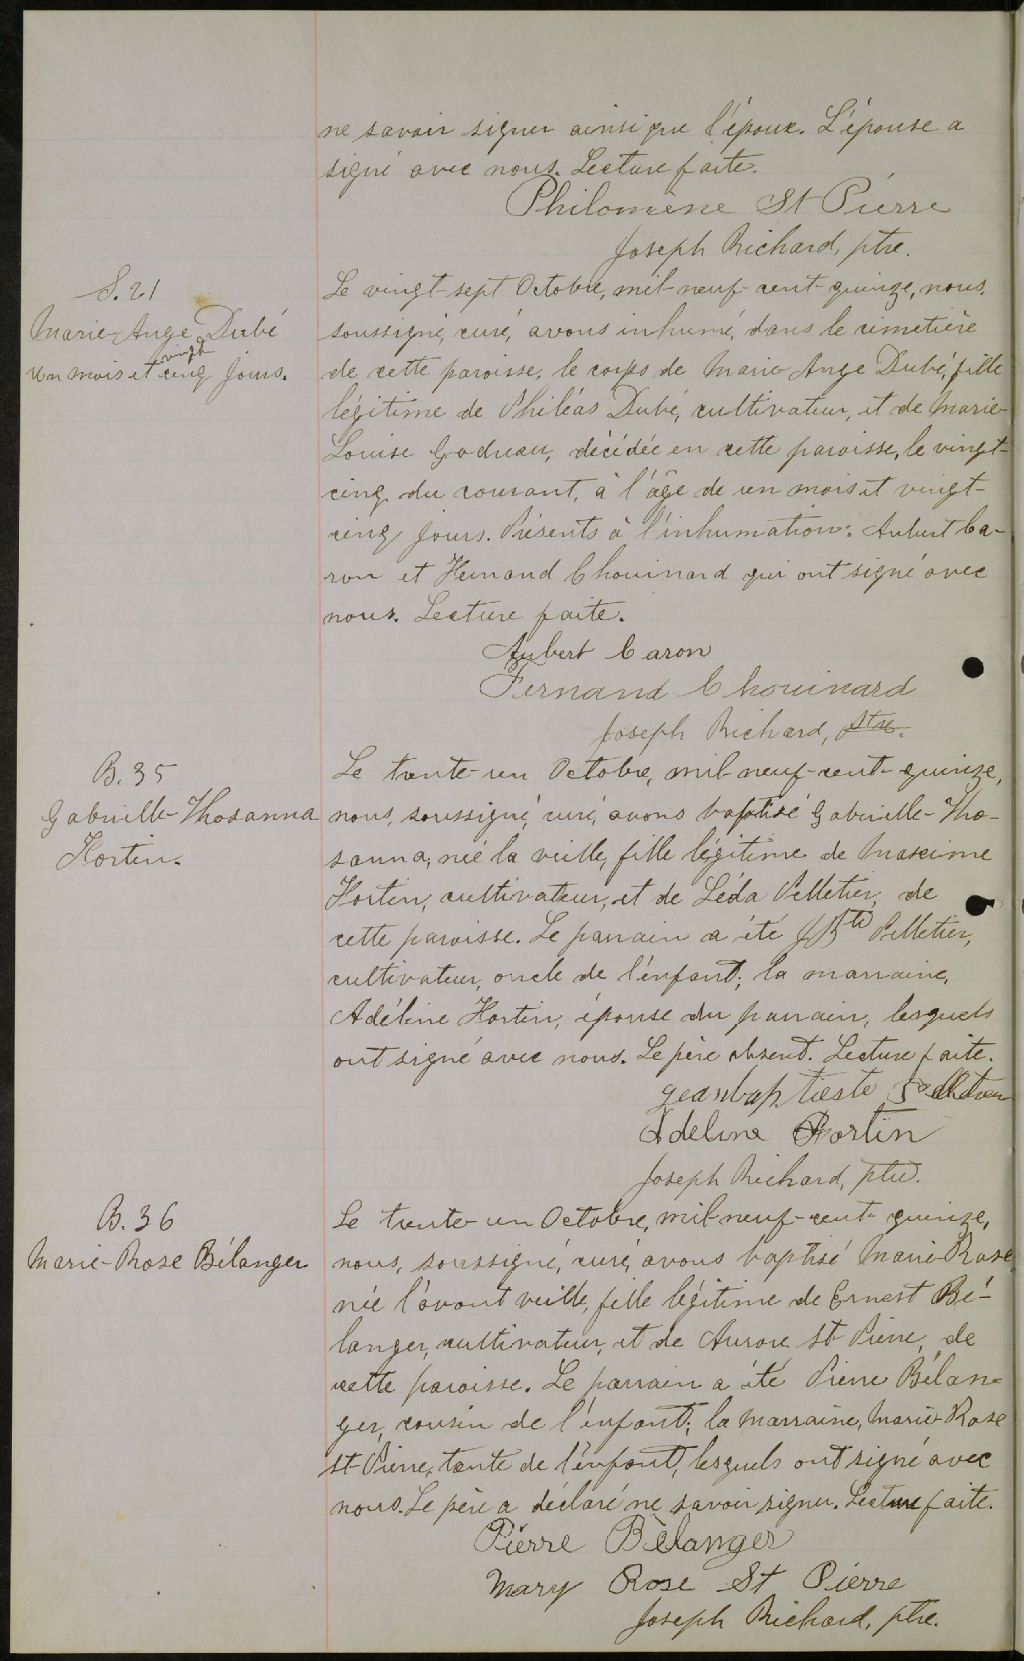 ne savoir signer ainsi que l'époux. L'épouse a
signé avec nous. Lecture faite.
Philomène St Pierre
Joseph Richard, ptre.
S. 21
Marie-Ange Dubé
un mois et vingt cinq jours.
Le vingt-sept Octobre, mil-neuf-cent-quinze, nous,
soussigné, curé, avons inhumé, dans le cimetière
de cette paroisse, le corps de Marie Ange Dubé, fille
légitime de Philéas Dubé, cultivateur, et de Marie-
Louise Godreau, décédée en cette paroisse, le vingt-
cinq du courant, à l'âge de un mois et vingt-
cinq jours. Présents à l'inhumation: Aubert Ca-
ron et Fernand Chouinard qui ont signé avec
nous. Lecture faite.
Aubert Caron
Fernand Chouinard
Joseph Richard, ptre.
B. 35
Gabrielle-Rhosanna
Fortin.
Le trente-un Octobre, mil-neuf-cent-quinze,
nous, soussigné, curé, avons baptisé Gabrielle-Rho-
sanna, née la veille, fille légitime de Maxime
Fortin, cultivateur, et de Léda Pelletier, de
cette paroisse. Le parrain a été J Bte Pelletier,
cultivateur, oncle de l'enfant; la marraine,
Adéline Fortin, épouse du parrain, lesquels
ont signé avec nous. Le père absent. Lecture faite.
geanbaptieste
Adelina Fortin
Joseph Richard, ptre.
B. 36
Marie-Rose Bélanger
Le trente-un Octobre, mil-neuf-cent-quinze,
nous, soussigné, curé, avons baptisé Marie-Rose
née l'avant veille, fille légitime de Ernest Bé-
langer, cultivateur, et de Aurore St Pierre, de
cette paroisse. Le parrain a été Pierre Bélan-
ger, cousin de l'enfant; la marraine, Marie-Rose
St-Pierre, tante de l'enfant, lesquels ont signé avec
nous. Le père a déclaré ne savoir signer. Lecture faite.
Pierre Bélanger
Mary Rose St Pierre
Joseph Richard, ptre.